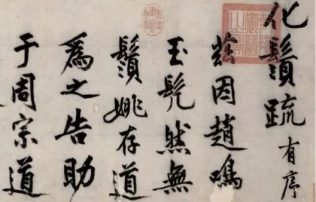 化鬚疏有序
兹因趙鳴
玉髡然無
鬚姚存道
爲之告助
于周宗道